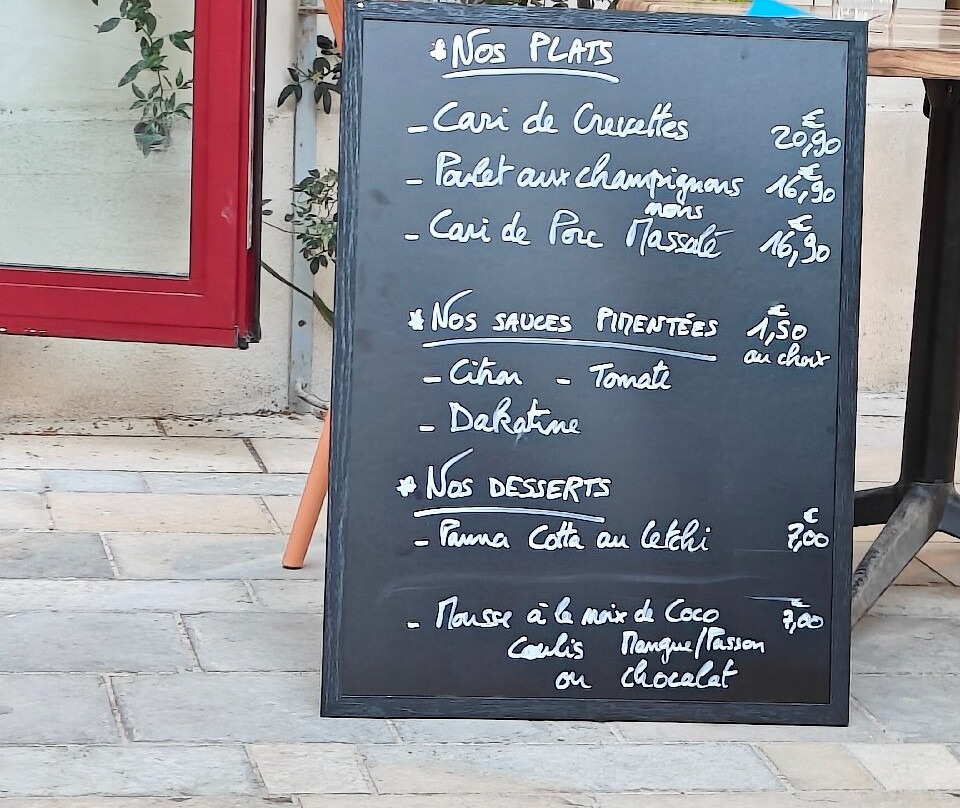 * NOS PLATS
- Cari de Crevettes 20,90 €
- Poulet aux champignons 16,90 €
noirs
- Cari de Porc Massalé 16,90 €
* NOS SAUCES PIMENTÉES 1,50 €
au choix
- Citron - Tomate
- Dakatine
* NOS DESSERTS
- Panna Cotta au letchi 7,00 €
- Mousse à la noix de Coco 7,00 €
Coulis Mangue/Passion
ou chocolat